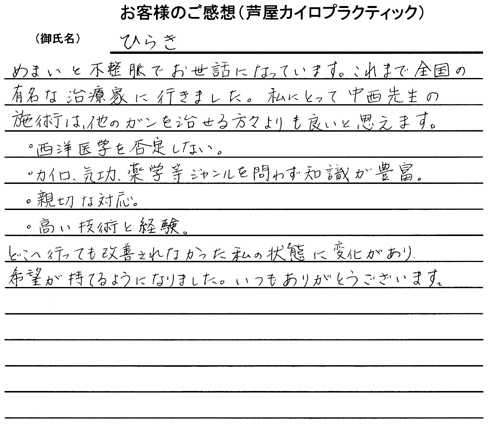 お客様のご感想(芦屋カイロプラクティック)
(御氏名) ひらき
めまいと不整脈でお世話になっています。これまで全国の
有名な治療家に行きました。私にとって中西先生の
施術は、他のガンを治せる方々よりも良いと思えます。
・西洋医学を否定しない。
・カイロ、気功、薬学等ジャンルを問わず知識が豊富。
・親切な対応。
・高い技術と経験。
どこへ行っても改善されなかった私の状態に変化があり
希望が持てるようになりました。いつもありがとうございます。